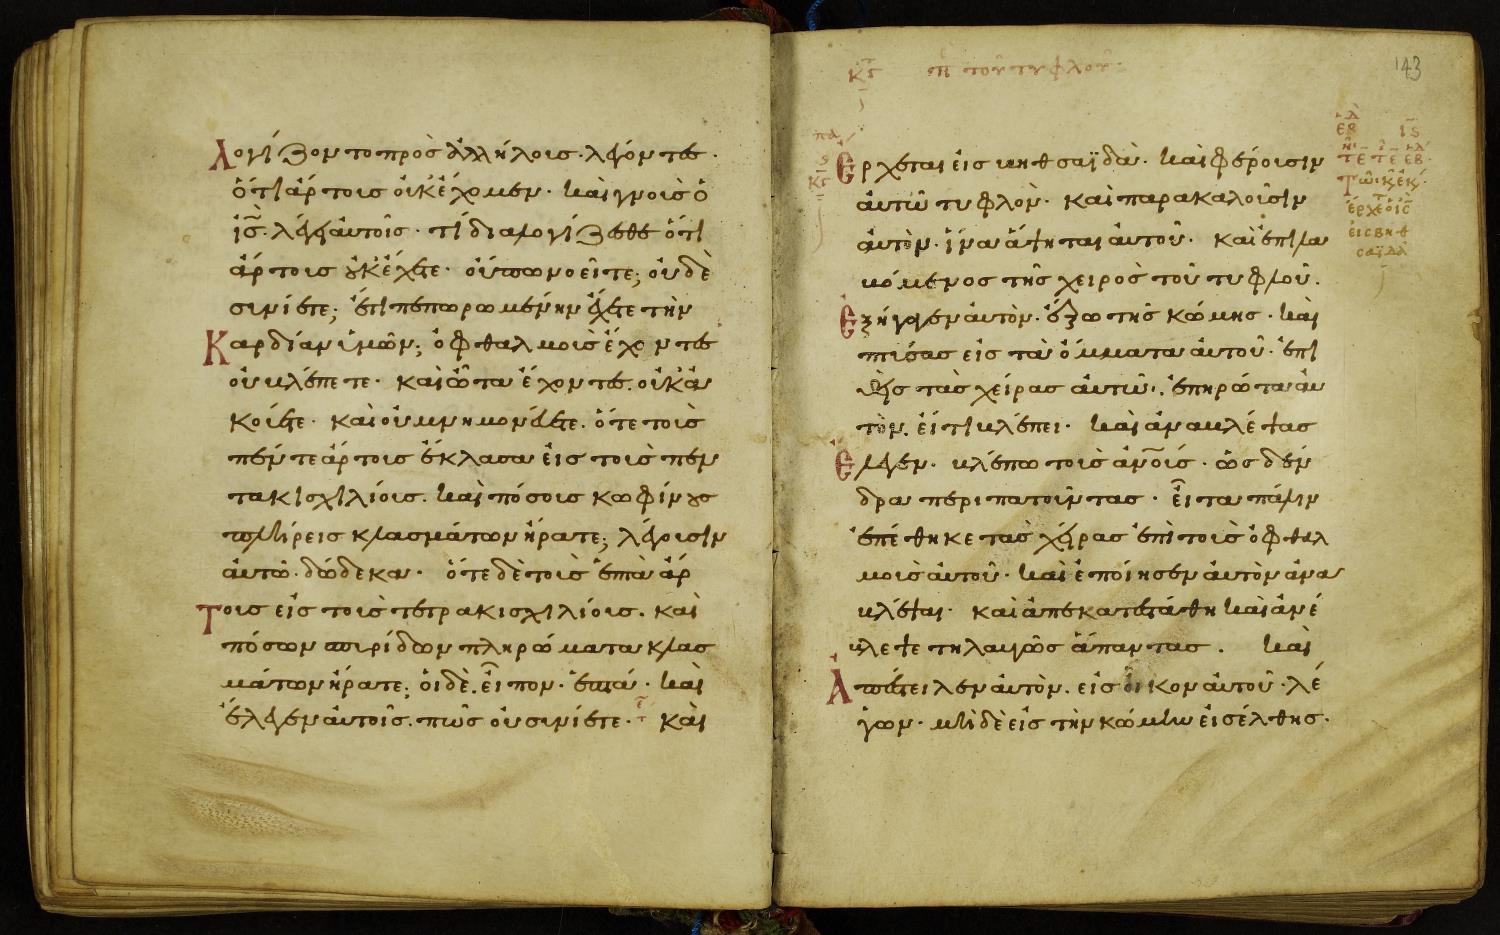 λογίζοντο πρὸσ ἀλλήλουσ· λέγοντεσ·
ὅτι ἄρτουσ οὐκ ἔχομεν· καὶ γνοὺσ ὁ
ἰ̅σ̅· λέγει αὐτοῖσ· τί διαλογίζεσθε ὅτι
ἄρτουσ οὐκ ἔχετε· οὔπω νοεῖτε; οὐδὲ
συνίετε; ἔτι πεπωρωμένην ἔχετε τὴν
καρδίαν ὑμῶν; ὀφθαλμοὺσ ἔχοντεσ
οὐ βλέπετε· καὶ ὦτα ἔχοντεσ· οὐκ ἀ
κούετε· καὶ οὐ μνημονεύετε· ὅτε τοὺσ
πέντε ἄρτουσ ἔκλασα εἰσ τοὺσ πεν
τακισχιλίουσ· καὶ πόσουσ κωφίνουσ
πλήρεισ κλασμάτων ἤρατε; λέγουσιν
αὐτῶ· δώδεκα· ὅτε δὲ τοὺσ ἑπτὰ ἄρ
τουσ εἰσ τοὺσ τετρακισχιλίουσ· καὶ
πόσων σπυρίδων πληρώματα κλασ
μάτων ἤρατε; οἱ δὲ εἶπον· ἑπτά· καὶ
ἔλεγεν αὐτοῖσ· πῶσ οὐ συνίετε· καὶ
τοῦ τυφλοῦ·
143
ἔρχεται εἰσ βηθσαϊδὰ· καὶ φέρουσιν
αὐτῶ τυφλὸν· καὶ παρακαλοῦσιν
αὐτὸν· ἵνα ἅψηται αὐτοῦ· καὶ ἐπιλα
βόμενοσ τῆσ χειρὸσ τοῦ τυφλοῦ·
ἐξήγαγεν αὐτὸν· ἔξω τῆσ κώμησ· καὶ
πτύσασ εἰσ τὰ ὄμματα αὐτοῦ· ἐπι
θεὶσ τὰσ χεῖρασ αὐτῶ· ἐπηρώτα αὐ
τὸν· εἴ τι βλέπει· καὶ ἀναβλέψασ
ἔλεγεν· βλέπω τοὺσ ἀν̅ουσ· ὡσ δέν
δρα περιπατοῦντασ· εἶτα πάλιν
ἐπέθηκε τὰσ χεῖρασ ἐπὶ τοὺσ ὀφθαλ
μοὺσ αὐτοῦ· καὶ ἐποίησεν αὐτὸν ἀνα
βλέψαι· καὶ ἀπεκατεστάθη καὶ ἀνέ
βλεψε τηλαυγῶσ ἅπαντασ· καὶ
ἀπέστειλεν αὐτὸν· εἰσ οἶκον αὐτοῦ· λέ
γων· μηδὲ εἰσ τὴν κώμην εἰσέλθησ·
τῶ κ̅ ἐκ̅
ἔρχε ὁ ι̅σ̅
εἰσ βηθ
σαϊδὰ